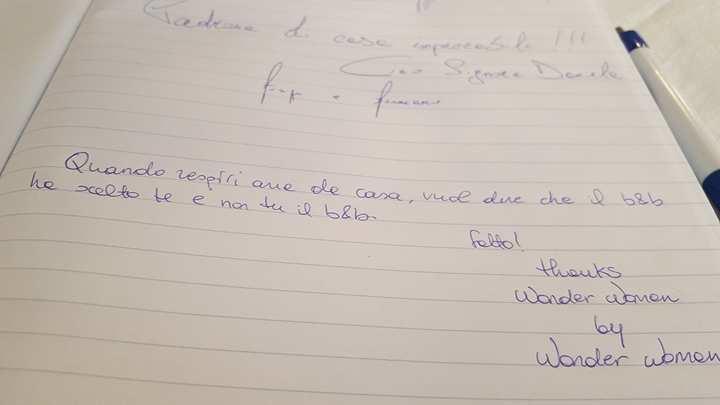 Padrona di casa impeccabile !!!
Ciao Signora Daniela
Quando respiri aria de casa, vuol dire che il b&b
ha scelto te e non tu il b&b.
Fatto!
thanks
Wonder women
by
Wonder women